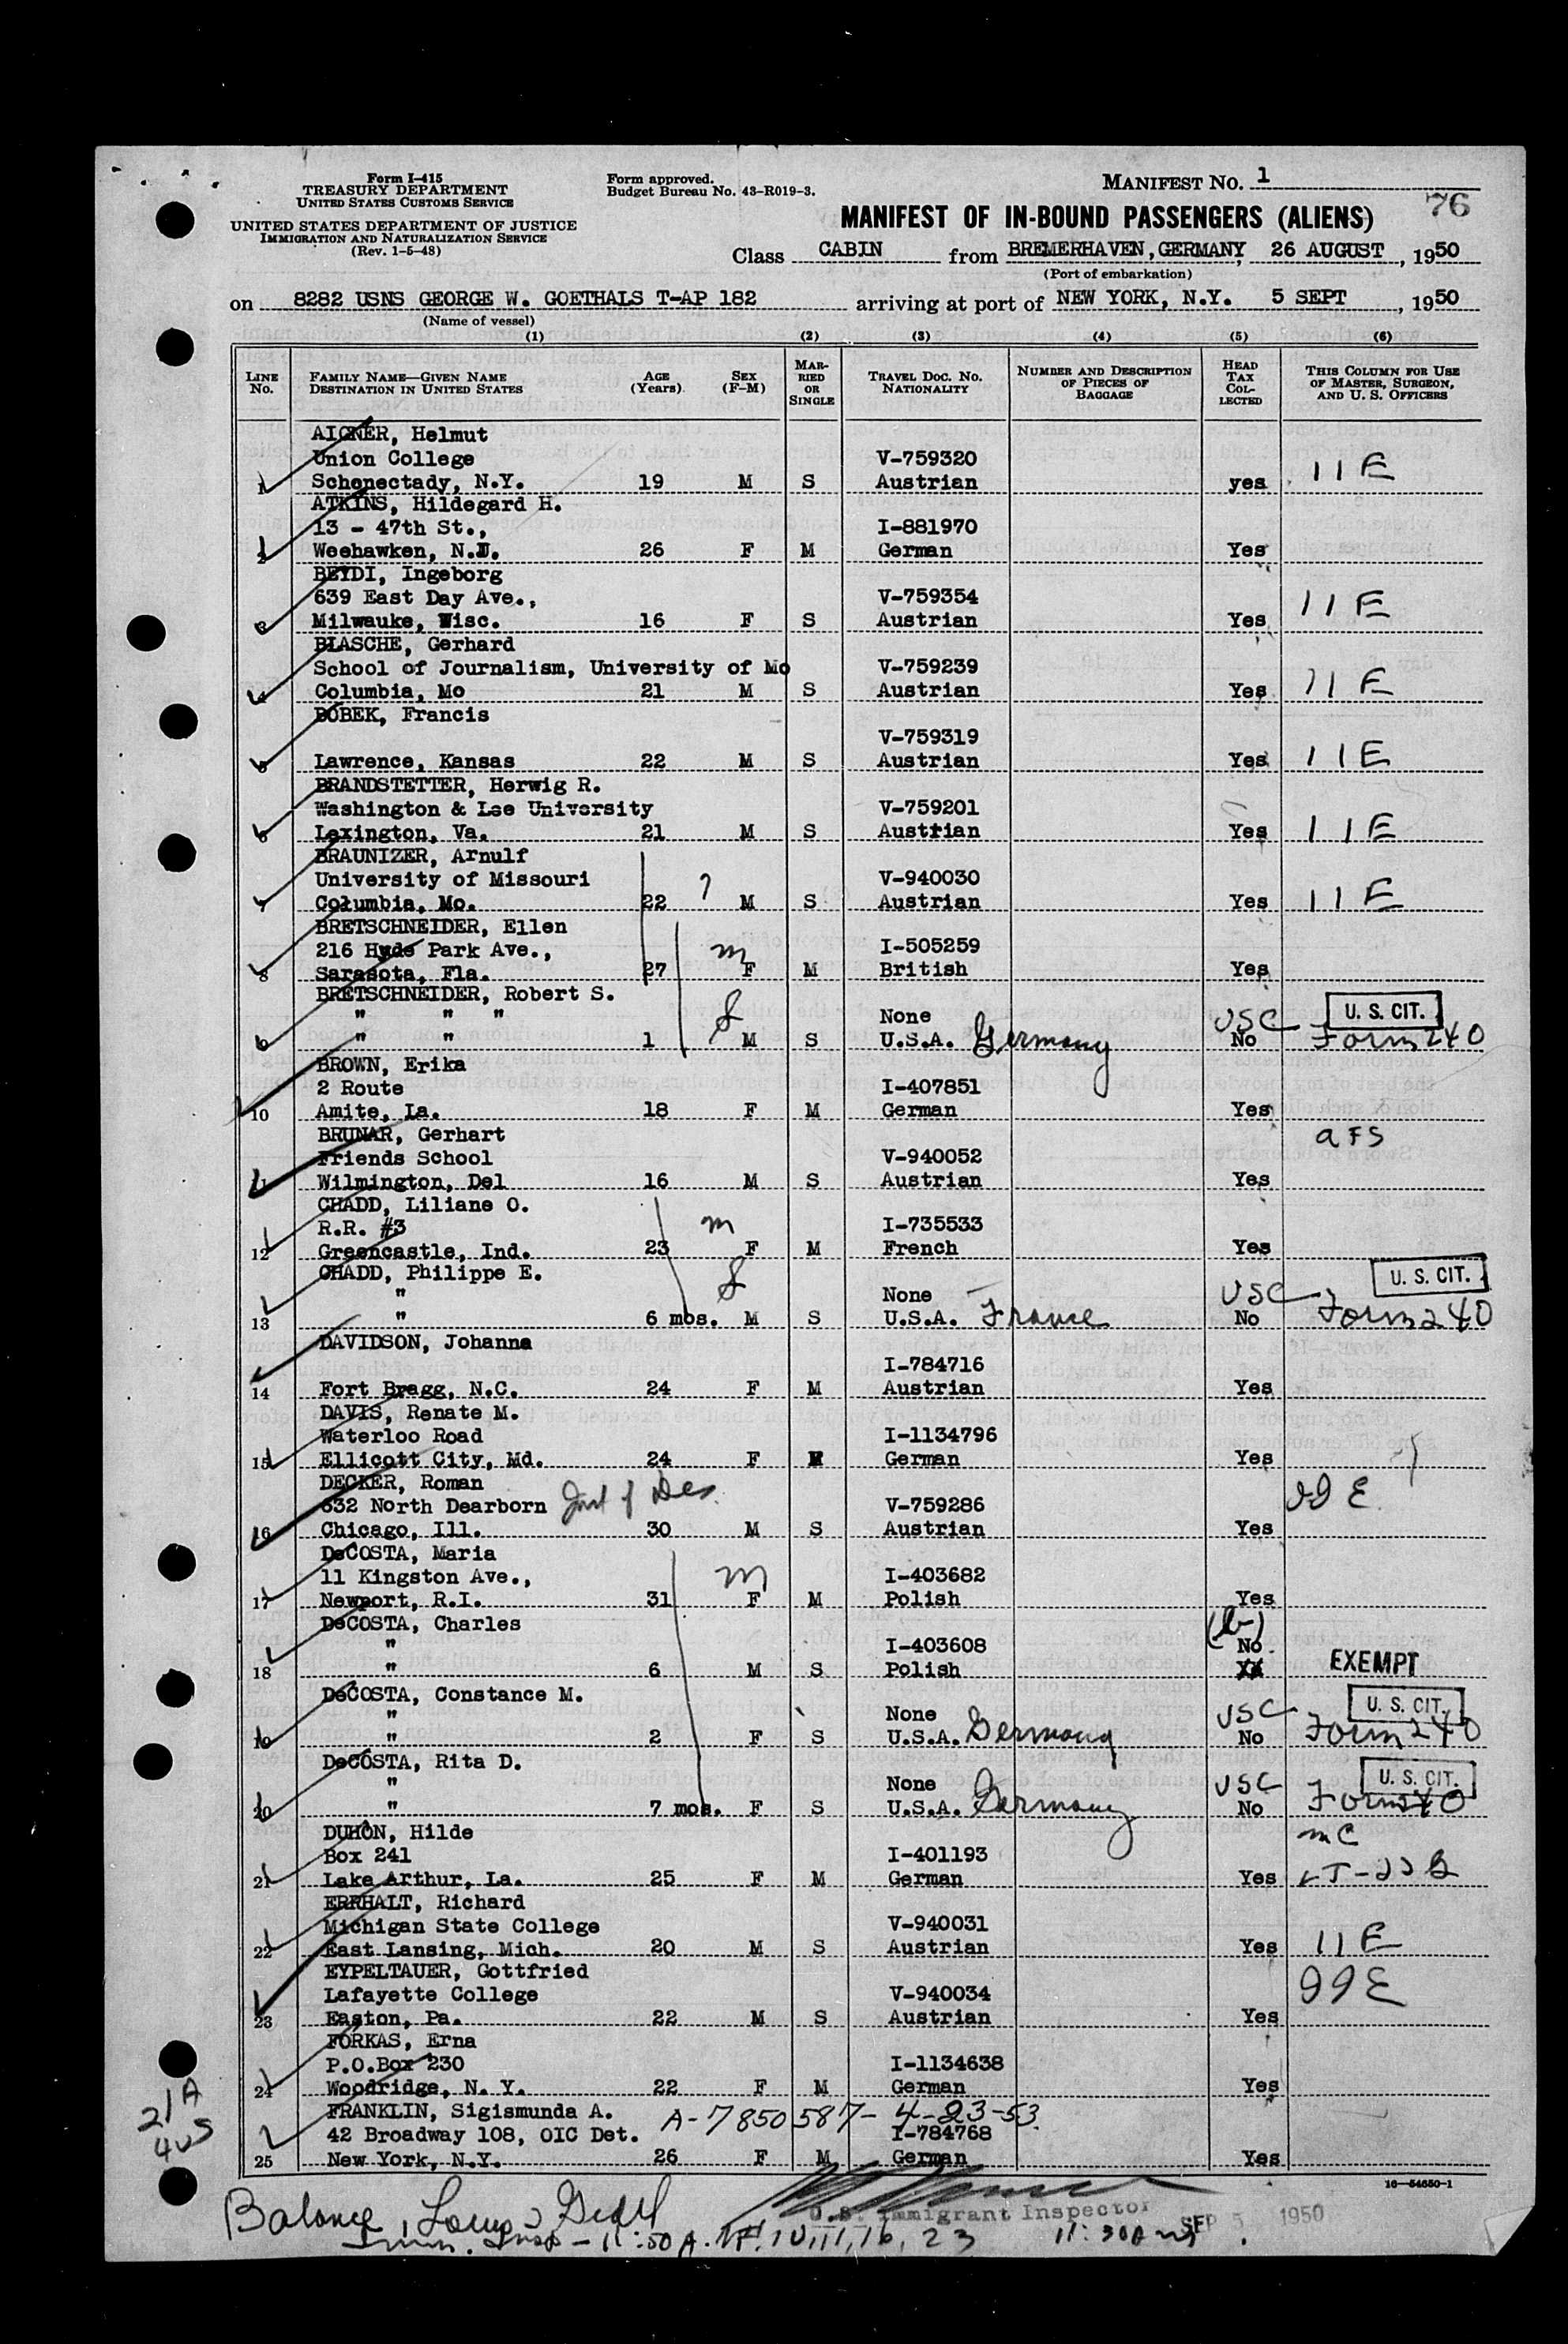 Form I-415
TREASURY DEPARTMENT
UNITED STATES CUSTOMS SERVICE
UNITED STATES DEPARTMENT OF JUSTICE
IMMIGRATION AND NATURALIZATION SERVICE
(Rev. 1-5-48)
Form approved.
Budget Bureau No. 43-R019-3.
MANIFEST NO. 1
76
MANIFEST OF IN-BOUND PASSENGERS (ALIENS)
Class CABIN from BREMERHAVEN, GERMANY, 26 AUGUST, 1950
(Port of embarkation)
on 8282 USNS GEORGE W. GOETHALS T-AP 182 arriving at port of NEW YORK, N.Y. 5 SEPT, 1950
(Name of vessel)
(1) (2) (3) (4) (5) (6)
LINE NO. FAMILY NAME—GIVEN NAME DESTINATION IN UNITED STATES AGE (YEARS) SEX (F-M) MARRIED OR SINGLE TRAVEL DOC. NO. NATIONALITY NUMBER AND DESCRIPTION OF PIECES OF BAGGAGE HEAD TAX COLLECTED THIS COLUMN FOR USE OF MASTER, SURGEON, AND U. S. OFFICERS
AIGNER, Helmut
Union College V-759320
1 Schenectady, N.Y. 19 M S Austrian yes 11E
ATKINS, Hildegard H.
13 - 47th St., I-881970
2 Weehawken, N.J. 26 F M German Yes
BEYDI, Ingeborg
639 East Day Ave., V-759354
3 Milwauke, Wisc. 16 F S Austrian Yes 11E
BLASCHE, Gerhard
School of Journalism, University of Mo V-759239
4 Columbia, Mo 21 M S Austrian Yes 11E
BOBEK, Francis
V-759319
5 Lawrence, Kansas 22 M S Austrian Yes 11E
BRANDSTETTER, Herwig R.
Washington & Lee University V-759201
6 Lexington, Va. 21 M S Austrian Yes 11E
BRAUNIZER, Arnulf
University of Missouri V-940030
7 Columbia, Mo. 22 ? M S Austrian Yes 11E
BRETSCHNEIDER, Ellen
216 Hyde Park Ave., m I-505259
8 Sarasota, Fla. 27 F M British Yes
BRETSCHNEIDER, Robert S.
" " " None USC U. S. CIT.
9 " " 1 M S U.S.A. Germany No Form 240
BROWN, Erika
2 Route I-407851
10 Amite, La. 18 F M German Yes
BRUNAR, Gerhart AFS
Friends School V-940052
11 Wilmington, Del 16 M S Austrian Yes
CHADD, Liliane O.
R.R. #3 m I-735533
12 Greencastle, Ind. 23 F M French Yes
CHADD, Philippe E. U. S. CIT.
" None USC
13 " 6 mos. M S U.S.A. France No Form 240
DAVIDSON, Johanna
I-784716
14 Fort Bragg, N.C. 24 F M Austrian Yes
DAVIS, Renate M.
Waterloo Road I-1134796
15 Ellicott City, Md. 24 F M German Yes
DECKER, Roman
632 North Dearborn Inst of Des. V-759286
16 Chicago, Ill. 30 M S Austrian Yes
DeCOSTA, Maria
11 Kingston Ave., m I-403682
17 Newport, R.I. 31 F M Polish Yes
DeCOSTA, Charles
" I-403608 No
18 " 6 M S Polish XX EXEMPT
DeCOSTA, Constance M. U. S. CIT.
" None USC
19 " 2 F S U.S.A. Germany No Form 240
DeCOSTA, Rita D. U. S. CIT.
" None USC
20 " 7 mos. F S U.S.A. Germany No Form 240
DUHON, Hilde
Box 241 I-401193
21 Lake Arthur, La. 25 F M German Yes
ERRHALT, Richard
Michigan State College V-940031
22 East Lansing, Mich. 20 M S Austrian Yes 11E
EYPELTAUER, Gottfried
Lafayette College V-940034
23 Easton, Pa. 22 M S Austrian Yes
FORKAS, Erna
P.O.Box 230 I-1134638
24 Woodridge, N. Y. 22 F M German Yes
FRANKLIN, Sigismunda A. A-7850587- 4-23-53
42 Broadway 108, OIC Det. I-784768
25 New York, N.Y. 26 F M German Yes
21A
4US
16—54650-1
U.S. Immigrant Inspector SEP 5 1950
11:50 A. 16, 23 11:30 AM